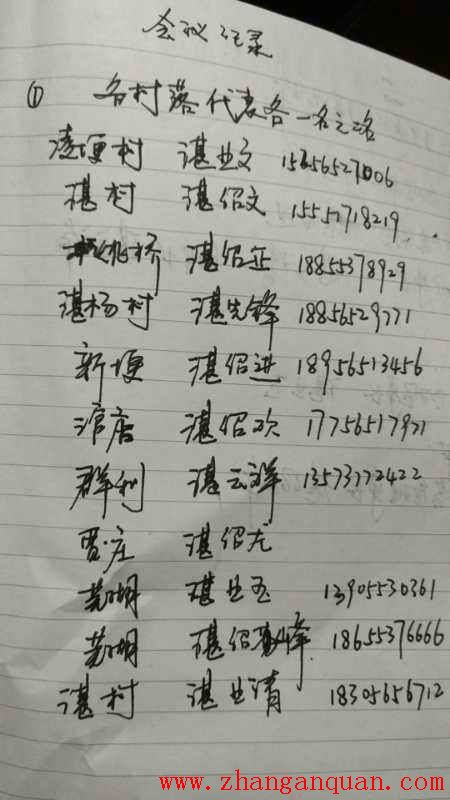 会议记录
① 各村落代表各一名之名
凌埂村 谌业文 15656527006
谌村 谌绍文 15551718219
桥 谌绍正 18855378929
谌杨村 谌先锋 18856529771
新埂 谌绍进 18956513456
店 谌绍欢 17756517971
群利 谌云祥 13573772422
贾庄 谌绍龙
芜湖 谌业玉 13905530361
芜湖 谌绍峰 18655376666
谌村 谌业清 18305656712
www.zhanganquan.com